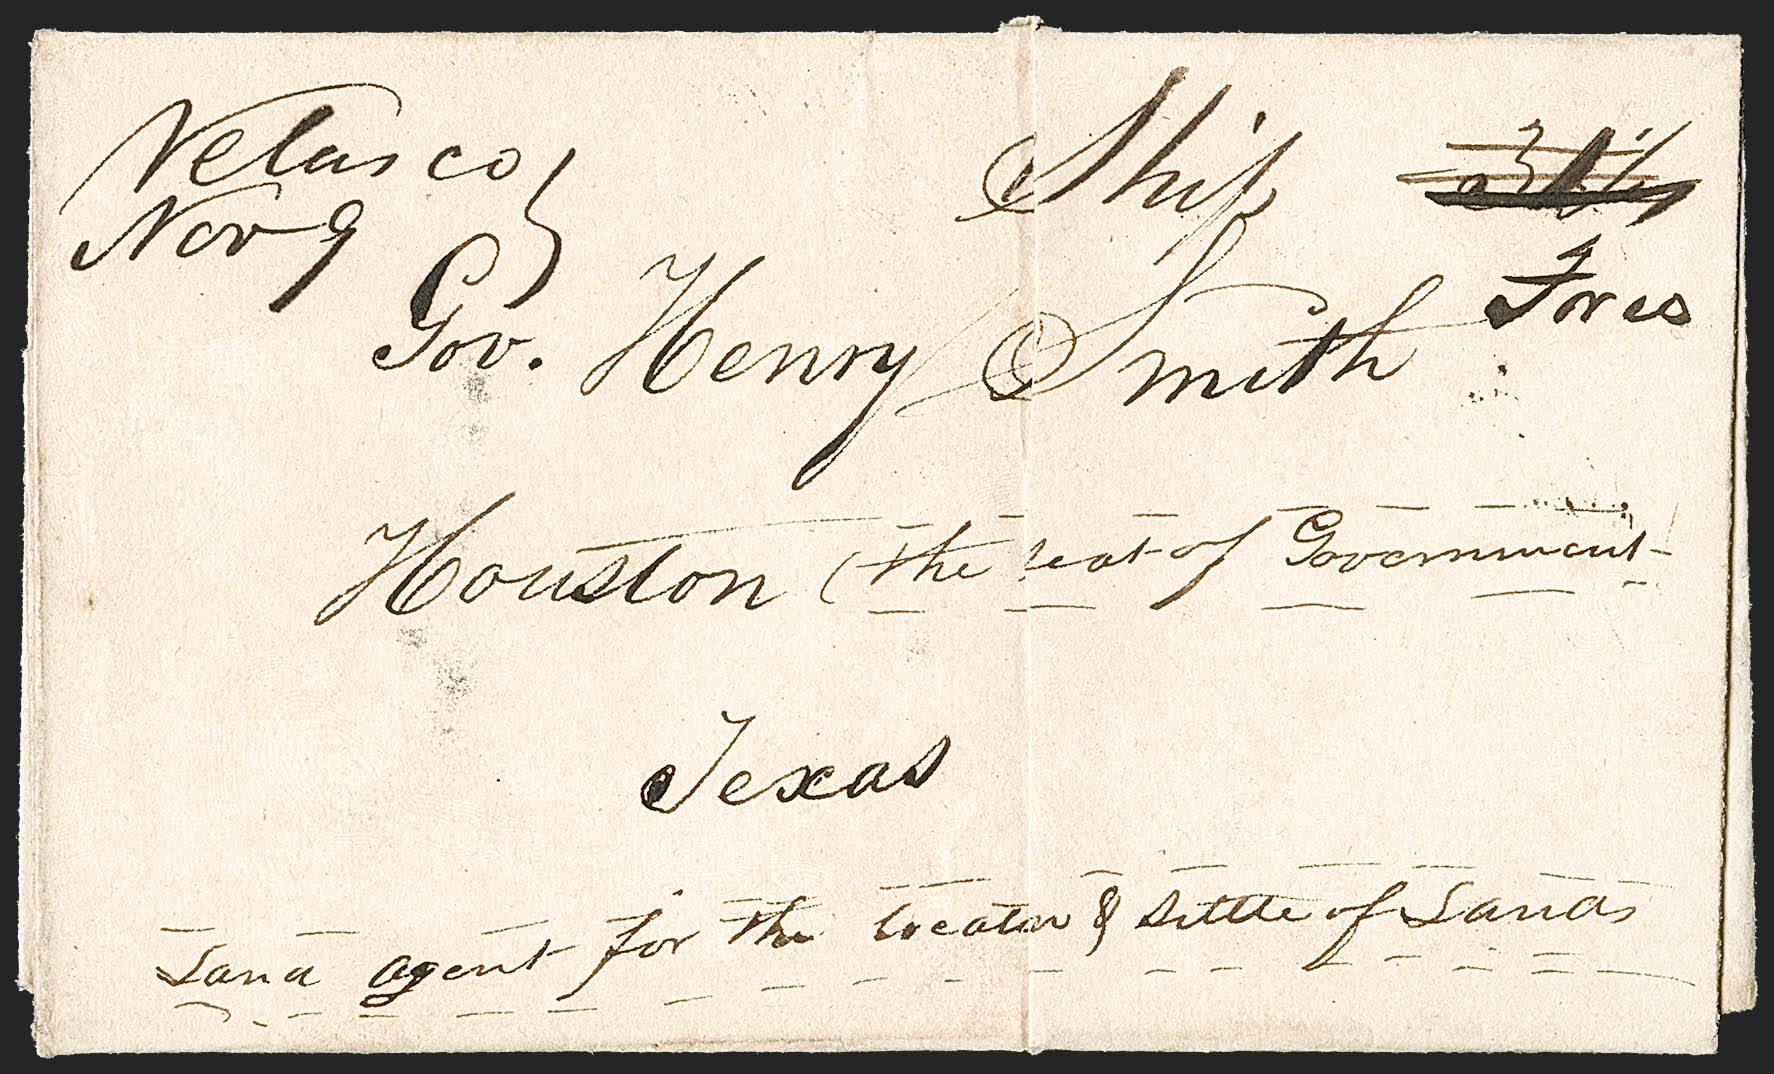 Velasco
Nov 9
Ship
Free
Gov. Henry Smith
Houston (the seat of Government
Texas
Land agent for the locator & settle of Lands